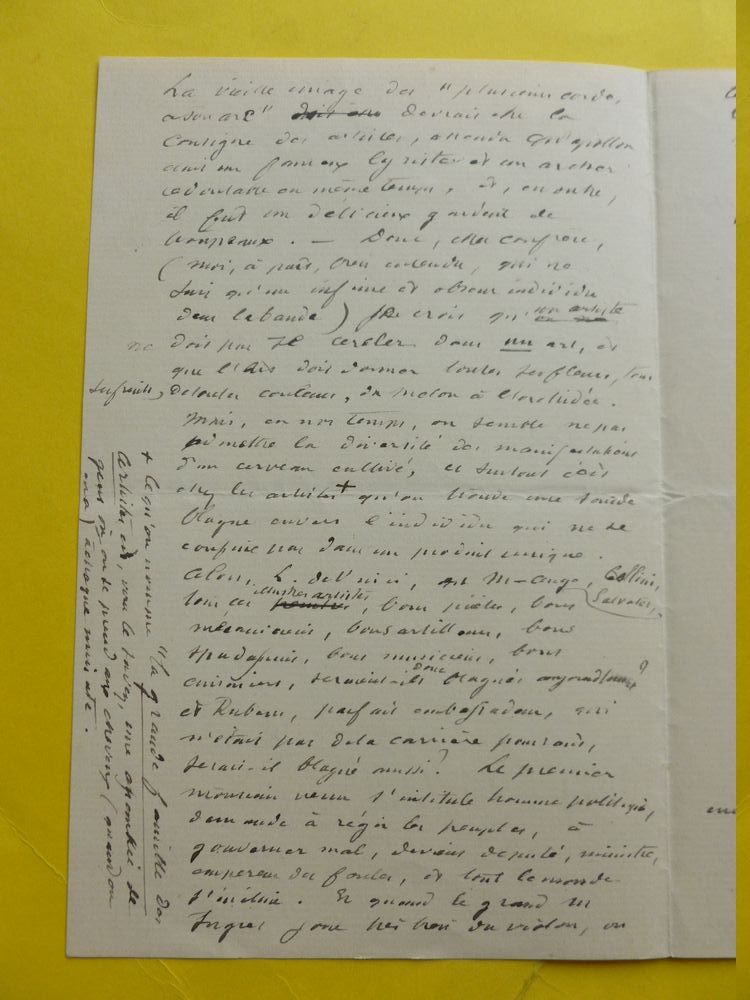 La vieille image des "plusieurs cordes
à son arc" doit être devrait être la
Consigne des artistes, attendu qu'Apollon
était un fameux lyriste et un archer
en même temps, et, en outre,
il fut un délicieux gardeur de
troupeaux. — Donc, cher confrère,
(moi, à part, bien entendu, qui ne
suis qu'un infime et obscur individu
dans la bande) je crois qu'un artiste
ne doit pas se cercler dans un art, et
que l'arbre doit donner toutes ses fleurs, tous
ses fruits, de toutes couleurs, du melon à l'orchidée.
Mais, en nos temps, on semble ne pas
admettre la diversité des manifestations
d'un cerveau cultivé, et surtout c'est
chez les artistes + qu'on trouve une sourde
blague envers l'individu qui ne se
confine pas dans un produit unique.
Alors, L. de Vinci, M-Ange, Cellini,
Salvator,
tous ces peintres illustres artistes, bons poètes, bons
mécaniciens, bons artilleurs, bons
spadassins, bons musiciens, bons
cuisiniers, seraient-ils donc blagués aujourd'hui?
et Rubens, parfait ambassadeur, qui
n'était pas de la carrière pourtant,
serait-il blagué aussi? Le premier
monsieur venu s'intitule homme politique,
demande à régir les peuples, à
gouverner mal, devient député, ministre,
empereur des foules, et tout le monde
s'incline. Et quand le grand M
Ingres joue très bien du violon, on
+ Ce qu'on nomme "la grande famille des
Artistes est, vers le
gens où on se prend aux cheveux (quand on
en a) à chaque minute.